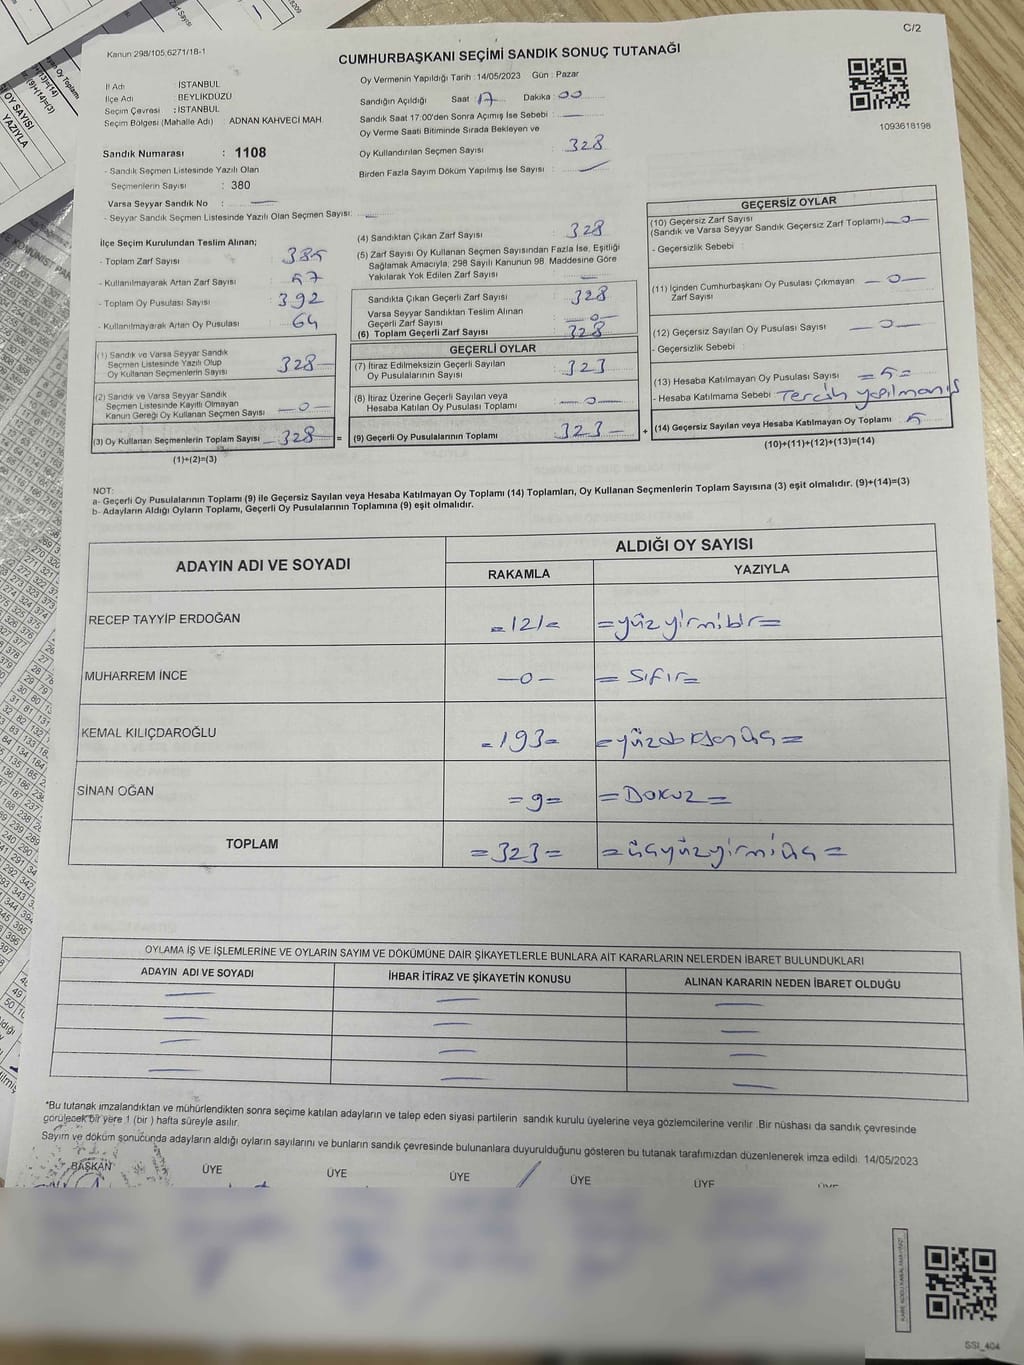 C/2
Kanun 298/105,6271/18-1
CUMHURBAŞKANI SEÇİMİ SANDIK SONUÇ TUTANAĞI
İl Adı : İSTANBUL
İlçe Adı : BEYLİKDÜZÜ
Seçim Çevresi : İSTANBUL
Seçim Bölgesi (Mahalle Adı) ADNAN KAHVECİ MAH.
Sandık Numarası : 1108
- Sandık Seçmen Listesinde Yazılı Olan
Seçmenlerin Sayısı : 380
Varsa Seyyar Sandık No : —
- Seyyar Sandık Seçmen Listesinde Yazılı Olan Seçmen Sayısı: —
Oy Vermenin Yapıldığı Tarih : 14/05/2023 Gün : Pazar
Sandığın Açıldığı Saat 17 Dakika 00
Sandık Saat 17:00'den Sonra Açımış İse Sebebi : —
Oy Verme Saati Bitiminde Sırada Bekleyen ve
Oy Kullandırılan Seçmen Sayısı : 328
Birden Fazla Sayım Döküm Yapılmış İse Sayısı : —
1093618198
İlçe Seçim Kurulundan Teslim Alınan;
- Toplam Zarf Sayısı : 385
- Kullanılmayarak Artan Zarf Sayısı : 57
- Toplam Oy Pusulası Sayısı : 392
- Kullanılmayarak Artan Oy Pusulası : 64
(1) Sandık ve Varsa Seyyar Sandık
Seçmen Listesinde Yazılı Olup
Oy Kullanan Seçmenlerin Sayısı 328
(2) Sandık ve Varsa Seyyar Sandık
Seçmen Listesinde Kayıtlı Olmayan
Kanun Gereği Oy Kullanan Seçmen Sayısı —0—
(3) Oy Kullanan Seçmenlerin Toplam Sayısı 328 =
(1)+(2)=(3)
(4) Sandıktan Çıkan Zarf Sayısı : 328
(5) Zarf Sayısı Oy Kullanan Seçmen Sayısından Fazla İse, Eşitliği
Sağlamak Amacıyla, 298 Sayılı Kanunun 98. Maddesine Göre
Yakılarak Yok Edilen Zarf Sayısı : —
Sandıkta Çıkan Geçerli Zarf Sayısı : 328
Varsa Seyyar Sandıktan Teslim Alınan
Geçerli Zarf Sayısı : —0—
(6) Toplam Geçerli Zarf Sayısı : 328
GEÇERLİ OYLAR
(7) İtiraz Edilmeksizin Geçerli Sayılan
Oy Pusulalarının Sayısı : 323
(8) İtiraz Üzerine Geçerli Sayılan veya
Hesaba Katılan Oy Pusulası Toplamı : —0—
(9) Geçerli Oy Pusulalarının Toplamı 323 +
GEÇERSİZ OYLAR
(10) Geçersiz Zarf Sayısı
(Sandık ve Varsa Seyyar Sandık Geçersiz Zarf Toplamı) —0—
- Geçersizlik Sebebi :
(11) İçinden Cumhurbaşkanı Oy Pusulası Çıkmayan —0—
Zarf Sayısı
(12) Geçersiz Sayılan Oy Pusulası Sayısı —0—
- Geçersizlik Sebebi :
(13) Hesaba Katılmayan Oy Pusulası Sayısı = 5 =
- Hesaba Katılmama Sebebi : Tercih yapılmamış
(14) Geçersiz Sayılan veya Hesaba Katılmayan Oy Toplamı 5
(10)+(11)+(12)+(13)=(14)
NOT:
a- Geçerli Oy Pusulalarının Toplamı (9) ile Geçersiz Sayılan veya Hesaba Katılmayan Oy Toplamı (14) Toplamları, Oy Kullanan Seçmenlerin Toplam Sayısına (3) eşit olmalıdır. (9)+(14)=(3)
b- Adayların Aldığı Oyların Toplamı, Geçerli Oy Pusulalarının Toplamına (9) eşit olmalıdır.
ADAYIN ADI VE SOYADI
ALDIĞI OY SAYISI
RAKAMLA YAZIYLA
RECEP TAYYİP ERDOĞAN =121= =yüzyirmibir=
MUHARREM İNCE —0— = Sıfır=
KEMAL KILIÇDAROĞLU =193= =yüzdoksanüç=
SİNAN OĞAN =9= =Dokuz=
TOPLAM =323= =üçyüzyirmiüç=
OYLAMA İŞ VE İŞLEMLERİNE VE OYLARIN SAYIM VE DÖKÜMÜNE DAİR ŞİKAYETLERLE BUNLARA AİT KARARLARIN NELERDEN İBARET BULUNDUKLARI
ADAYIN ADI VE SOYADI İHBAR İTİRAZ VE ŞİKAYETİN KONUSU ALINAN KARARIN NEDEN İBARET OLDUĞU
*Bu tutanak imzalandıktan ve mühürlendikten sonra seçime katılan adayların ve talep eden siyasi partilerin sandık kurulu üyelerine veya gözlemcilerine verilir .Bir nüshası da sandık çevresinde
görülecek bir yere 1 (bir ) hafta süreyle asılır.
Sayım ve döküm sonucunda adayların aldığı oyların sayılarını ve bunların sandık çevresinde bulunanlara duyurulduğunu gösteren bu tutanak tarafımızdan düzenlenerek imza edildi. 14/05/2023
BAŞKAN ÜYE ÜYE ÜYE ÜYE ÜYE ÜYE
SSI_404